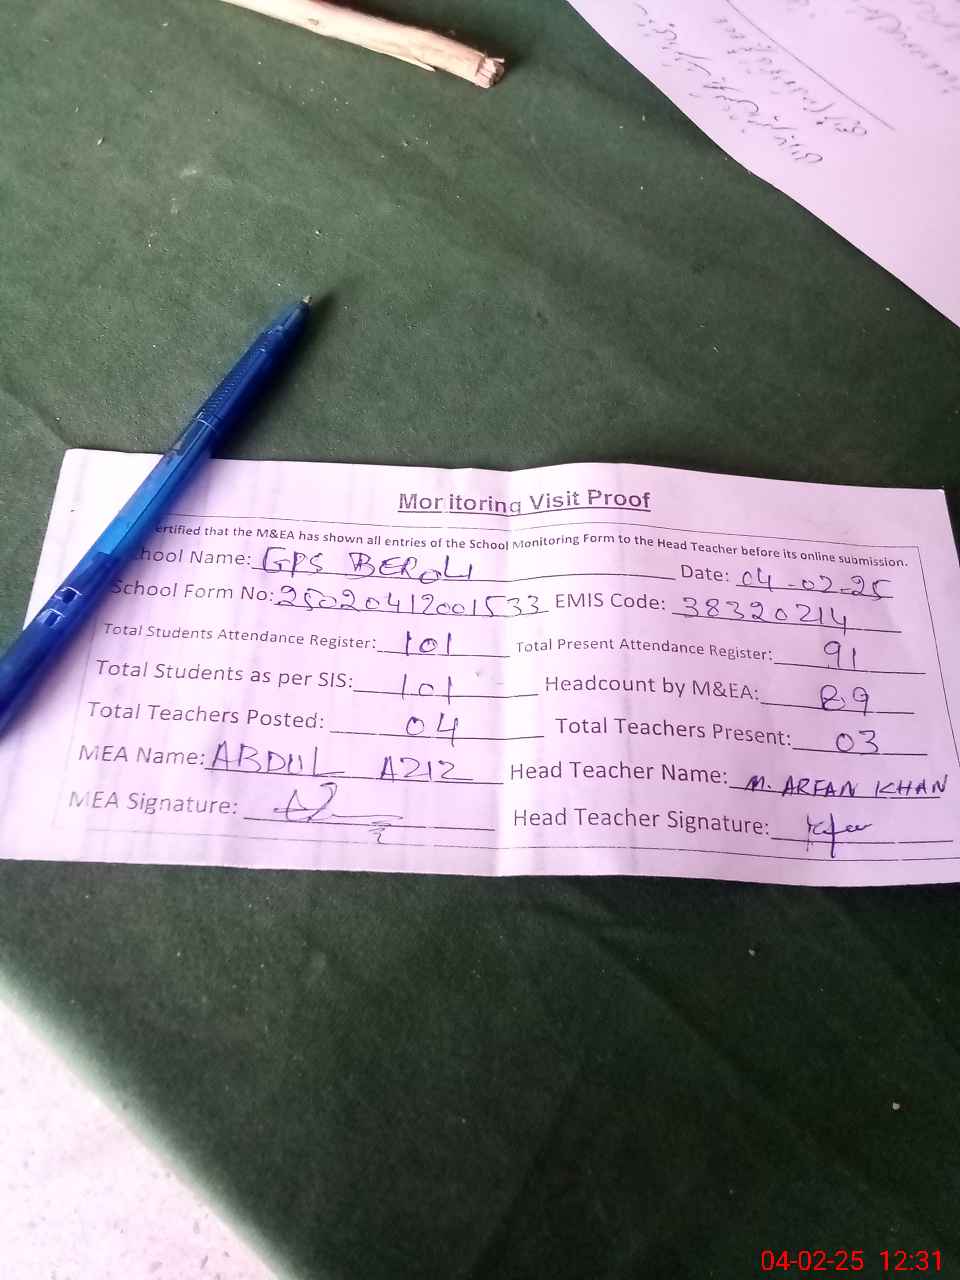 Monitoring Visit Proof
ertified that the M&EA has shown all entries of the School Monitoring Form to the Head Teacher before its online submission.
hool Name: GPS BEROLI Date: 04-02-25
School Form No: 25020412001533 EMIS Code: 38320214
Total Students Attendance Register: 101 Total Present Attendance Register: 91
Total Students as per SIS: 101 Headcount by M&EA: 89
Total Teachers Posted: 04 Total Teachers Present: 03
MEA Name: ABDUL AZIZ Head Teacher Name: M. ARFAN KHAN
MEA Signature: Head Teacher Signature:
04-02-25 12:31